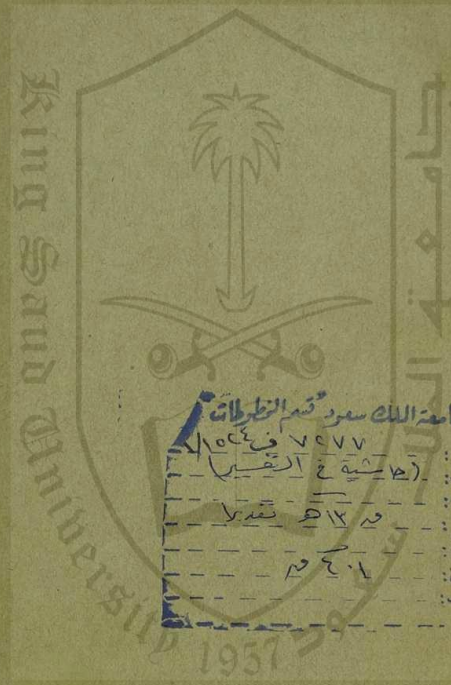 King Saud University
جامعة الملك سعود
1957
جامعة الملك سعود قسم المخطوطات
٧٢٧٧ ف ١٥٢٤/٨
(حاشية في التفسير)
ق ١٣ هـ تقديرا
٤٠١ ق